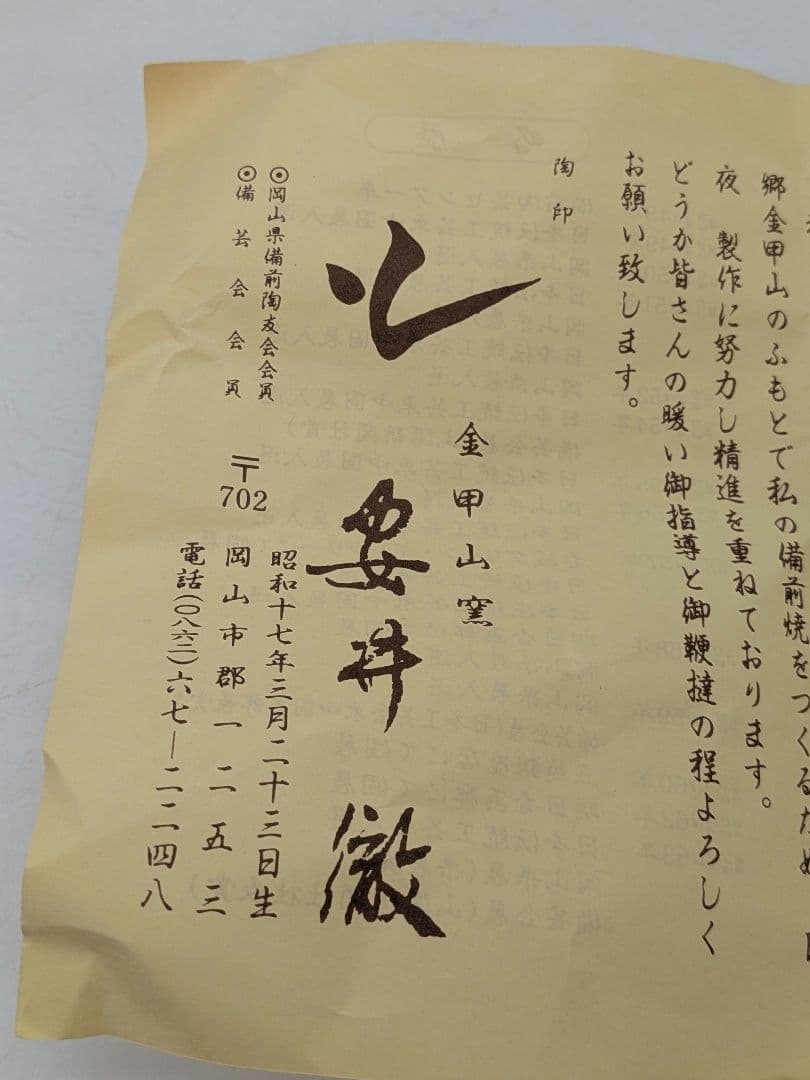 郷金甲山のふもとで私の備前焼をつくるため
夜 製作に努力し精進を重ねております。
どうか皆さんの暖い御指導と御鞭撻の程よろしく
お願い致します。
陶印
金甲山窯
安井 徹
昭和十七年三月二十三日生
〒702
岡山市郡一二五三
電話(〇八六二)六七―二二四八
◎岡山県備前陶友会会員
◎備芸会会員